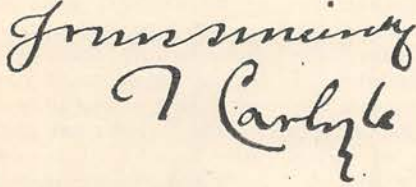 Yours sincerely
T Carlyle